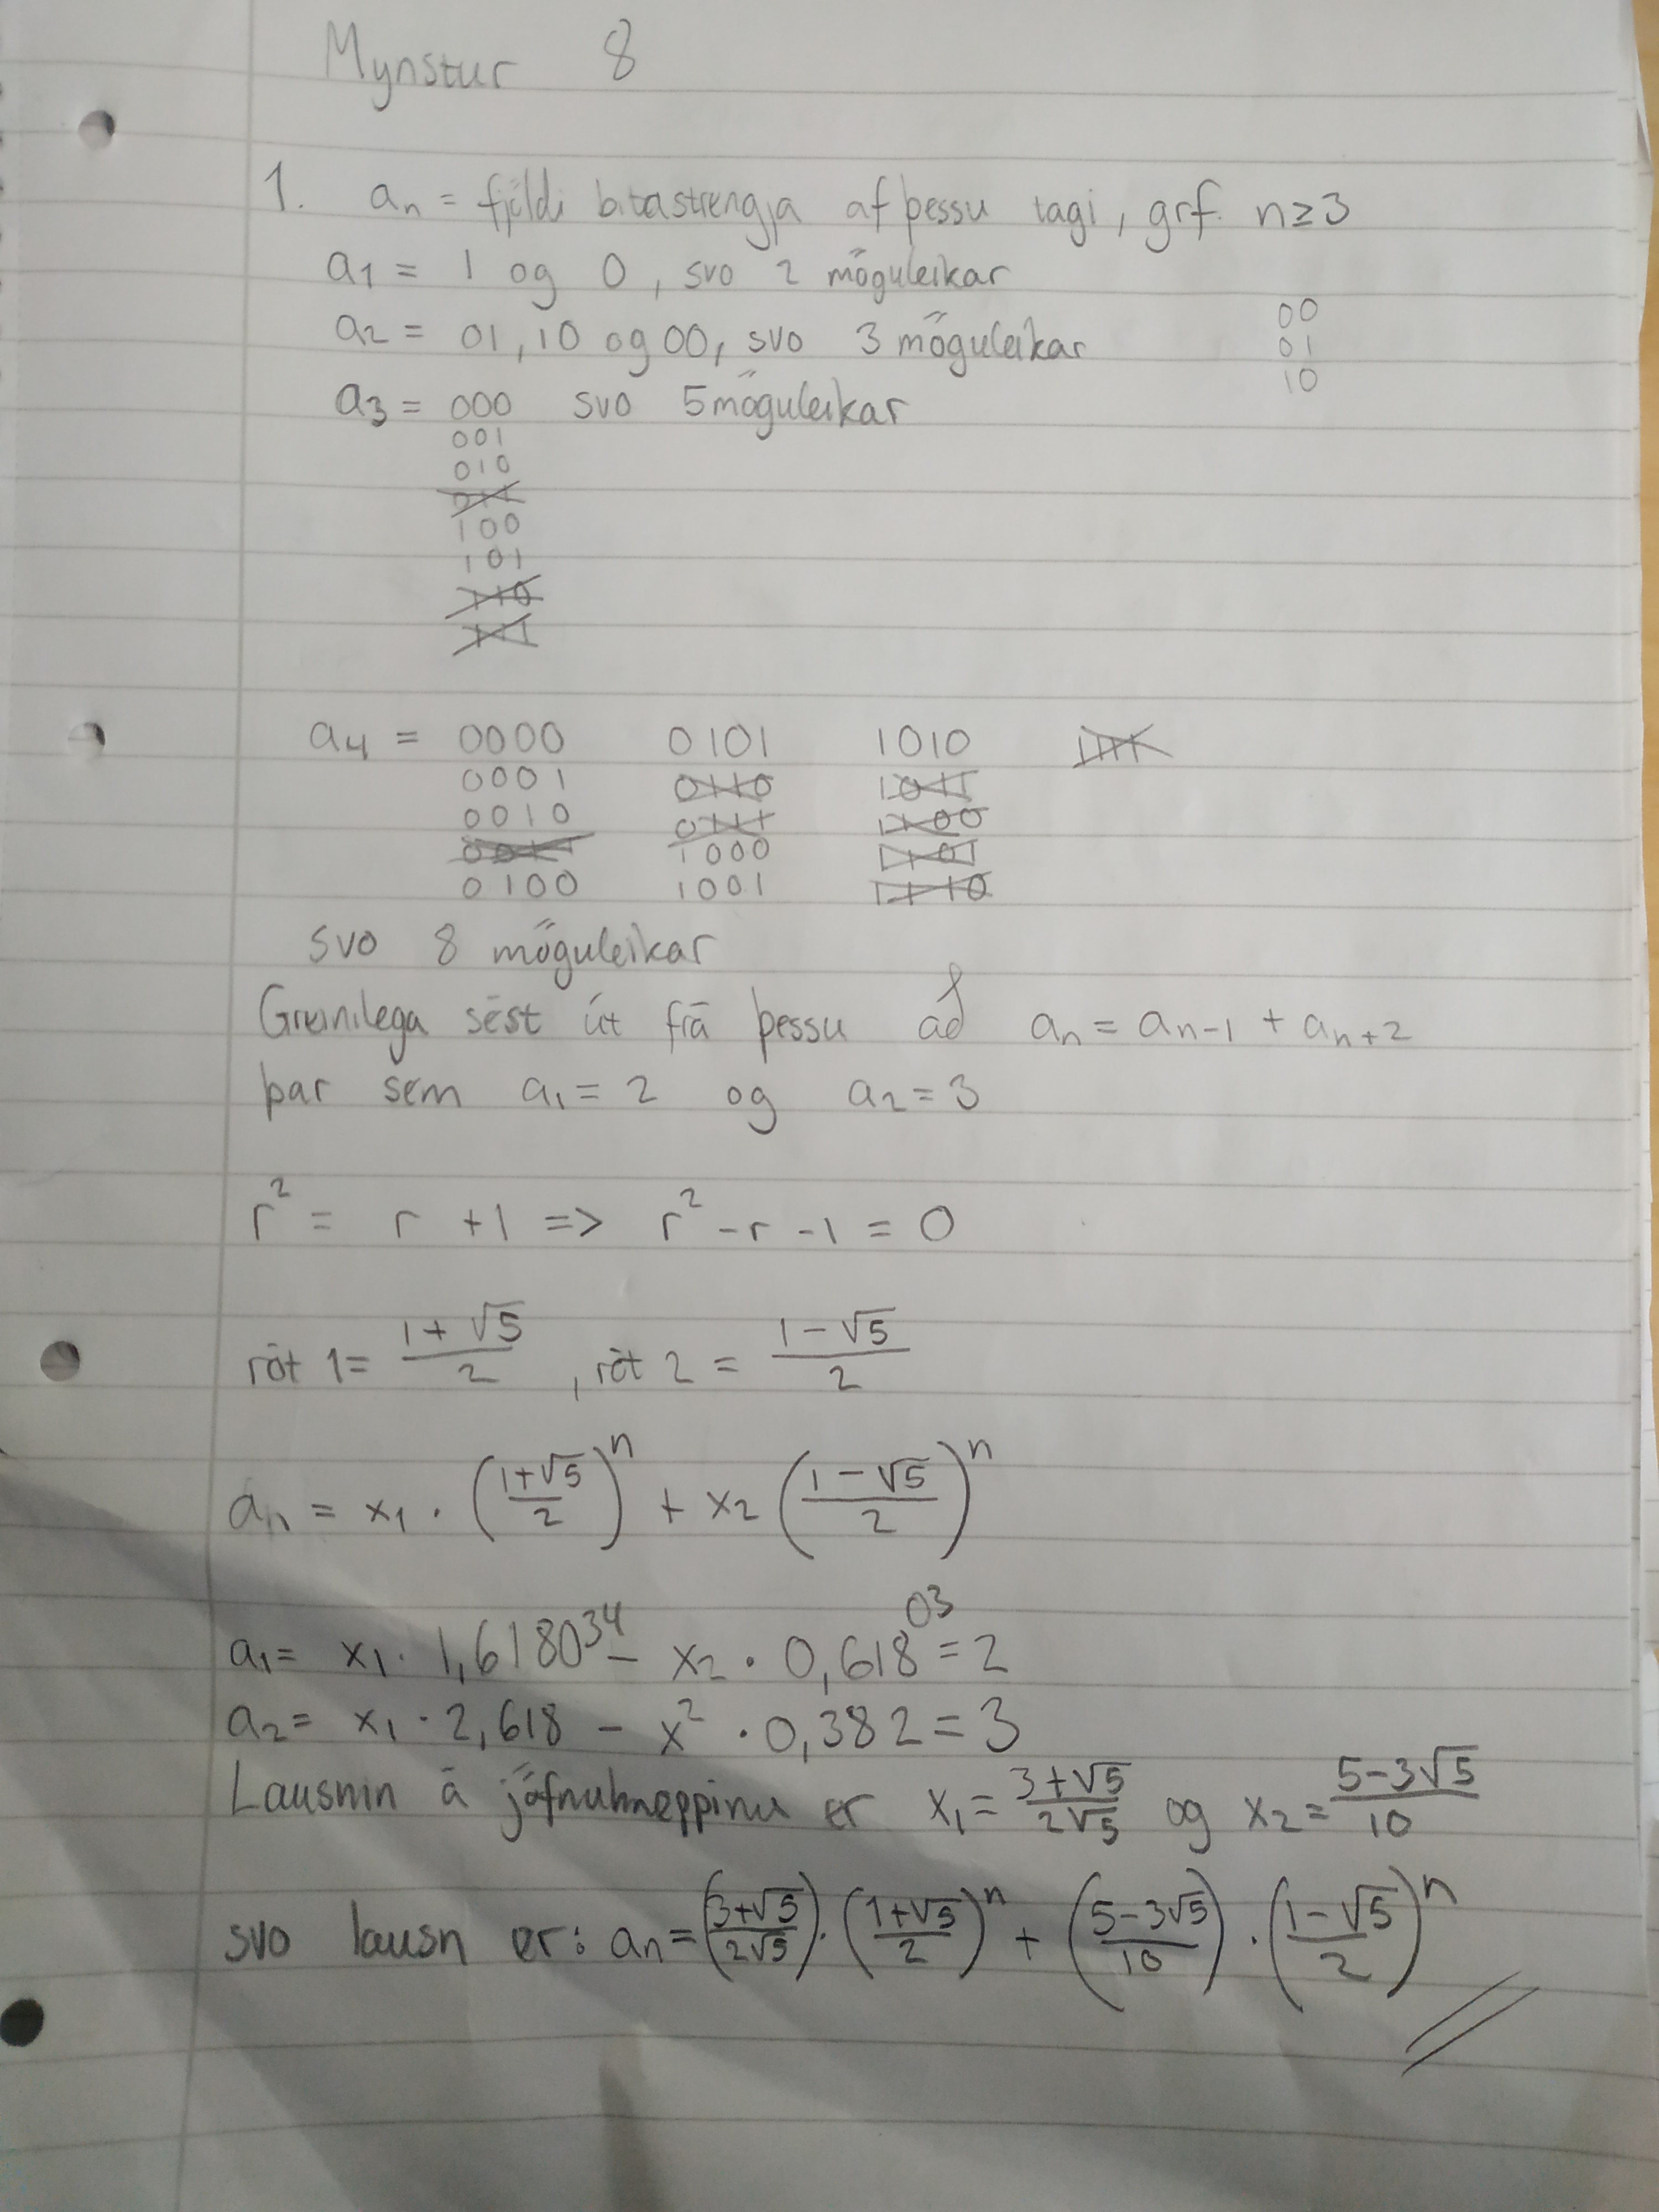 Mynstur 8
1. aₙ = fjöldi bitastrengja af þessu tagi, grf. n≥3
a₁ = 1 og 0, svo 2 möguleikar
a₂ = 01, 10 og 00, svo 3 möguleikar
00
01
10
a₃ = 000 svo 5 möguleikar
001
010
011
100
101
110
111
a₄ = 0000 0101 1010 1111
0001 0110 1011
0010 0111 1100
0011 1000 1101
0100 1001 1110
svo 8 möguleikar
Greinilega sést út frá þessu að aₙ = aₙ₋₁ + aₙ₊₂
þar sem a₁ = 2 og a₂ = 3
r² = r + 1 => r² - r - 1 = 0
rót 1 = (1 + √5)/2, rót 2 = (1 - √5)/2
aₙ = x₁ · ((1+√5)/2)ⁿ + x₂ ((1-√5)/2)ⁿ
a₁ = x₁ · 1,618034 - x₂ · 0,61803 = 2
a₂ = x₁ · 2,618 - x² · 0,382 = 3
Lausnin á jöfnuhneppinu er x₁ = (3+√5)/(2√5) og x₂ = (5-3√5)/10
svo lausn er: aₙ = ((3+√5)/(2√5)) · ((1+√5)/2)ⁿ + ((5-3√5)/10) · ((1-√5)/2)ⁿ